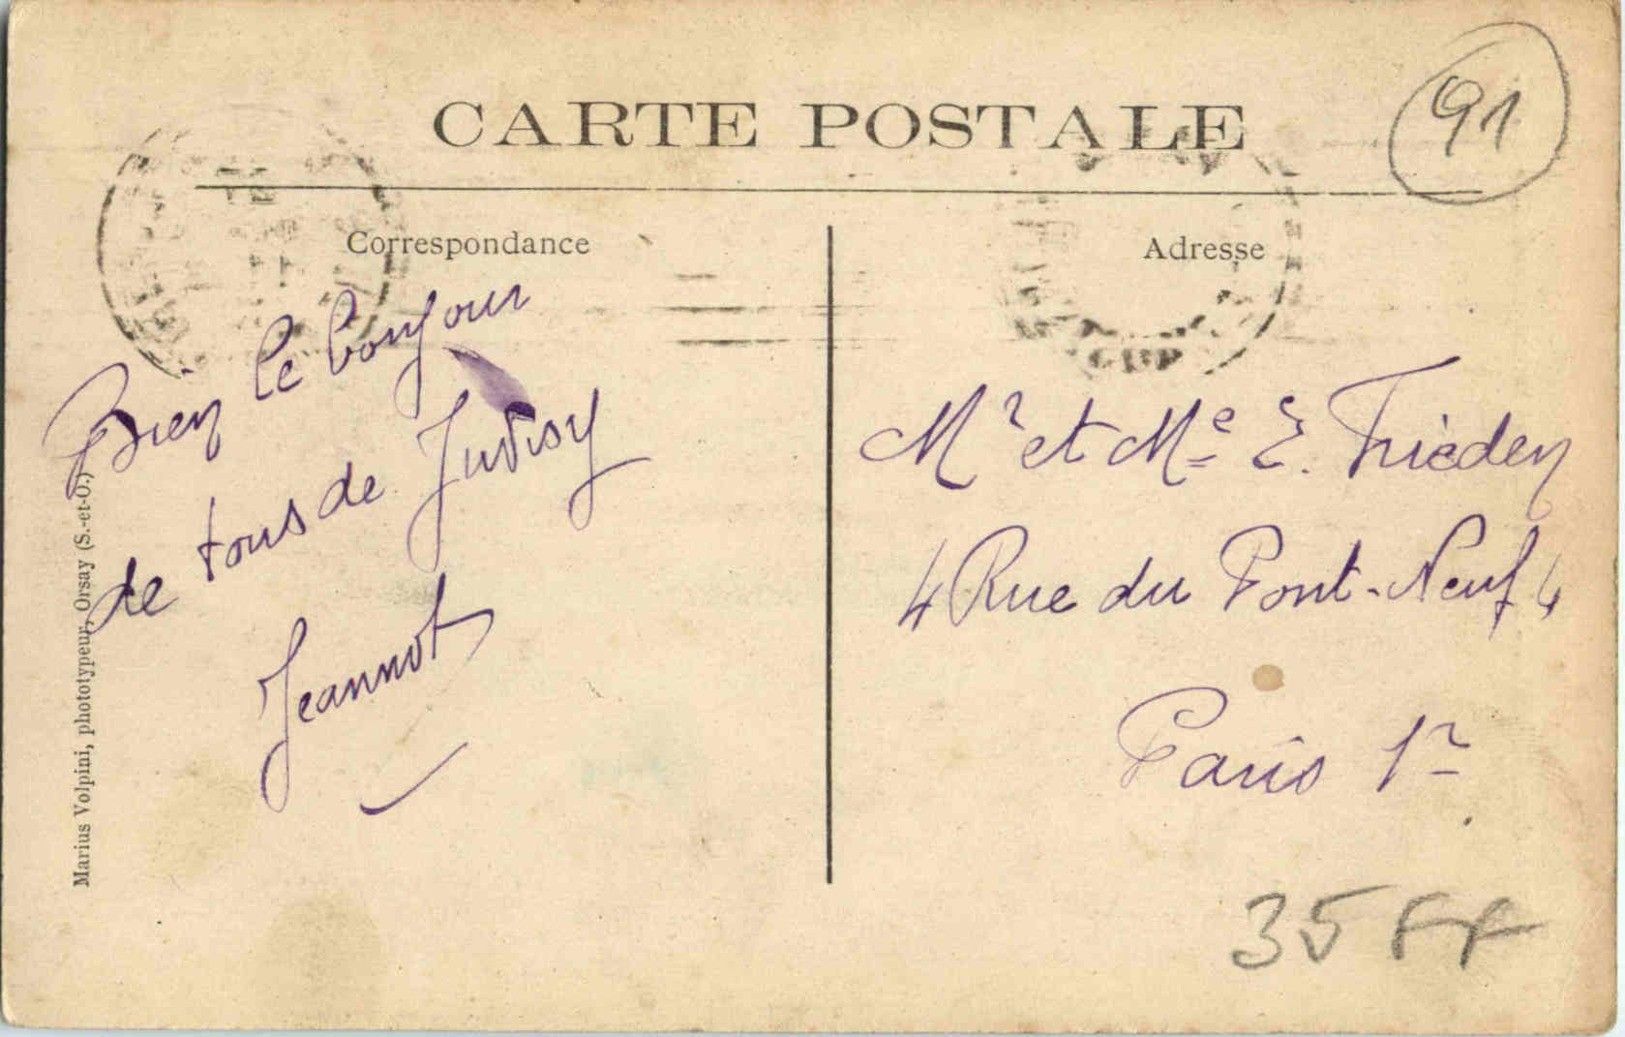 CARTE POSTALE
91
Correspondance
Bien le bonjour
de tous de Juvisy
Jeannot
Marius Volpini, phototypeur, Orsay (S.-et-O.)
Adresse
Mr et Me E. Frieden
4 Rue du Pont-Neuf 4
Paris 1r
35 FF